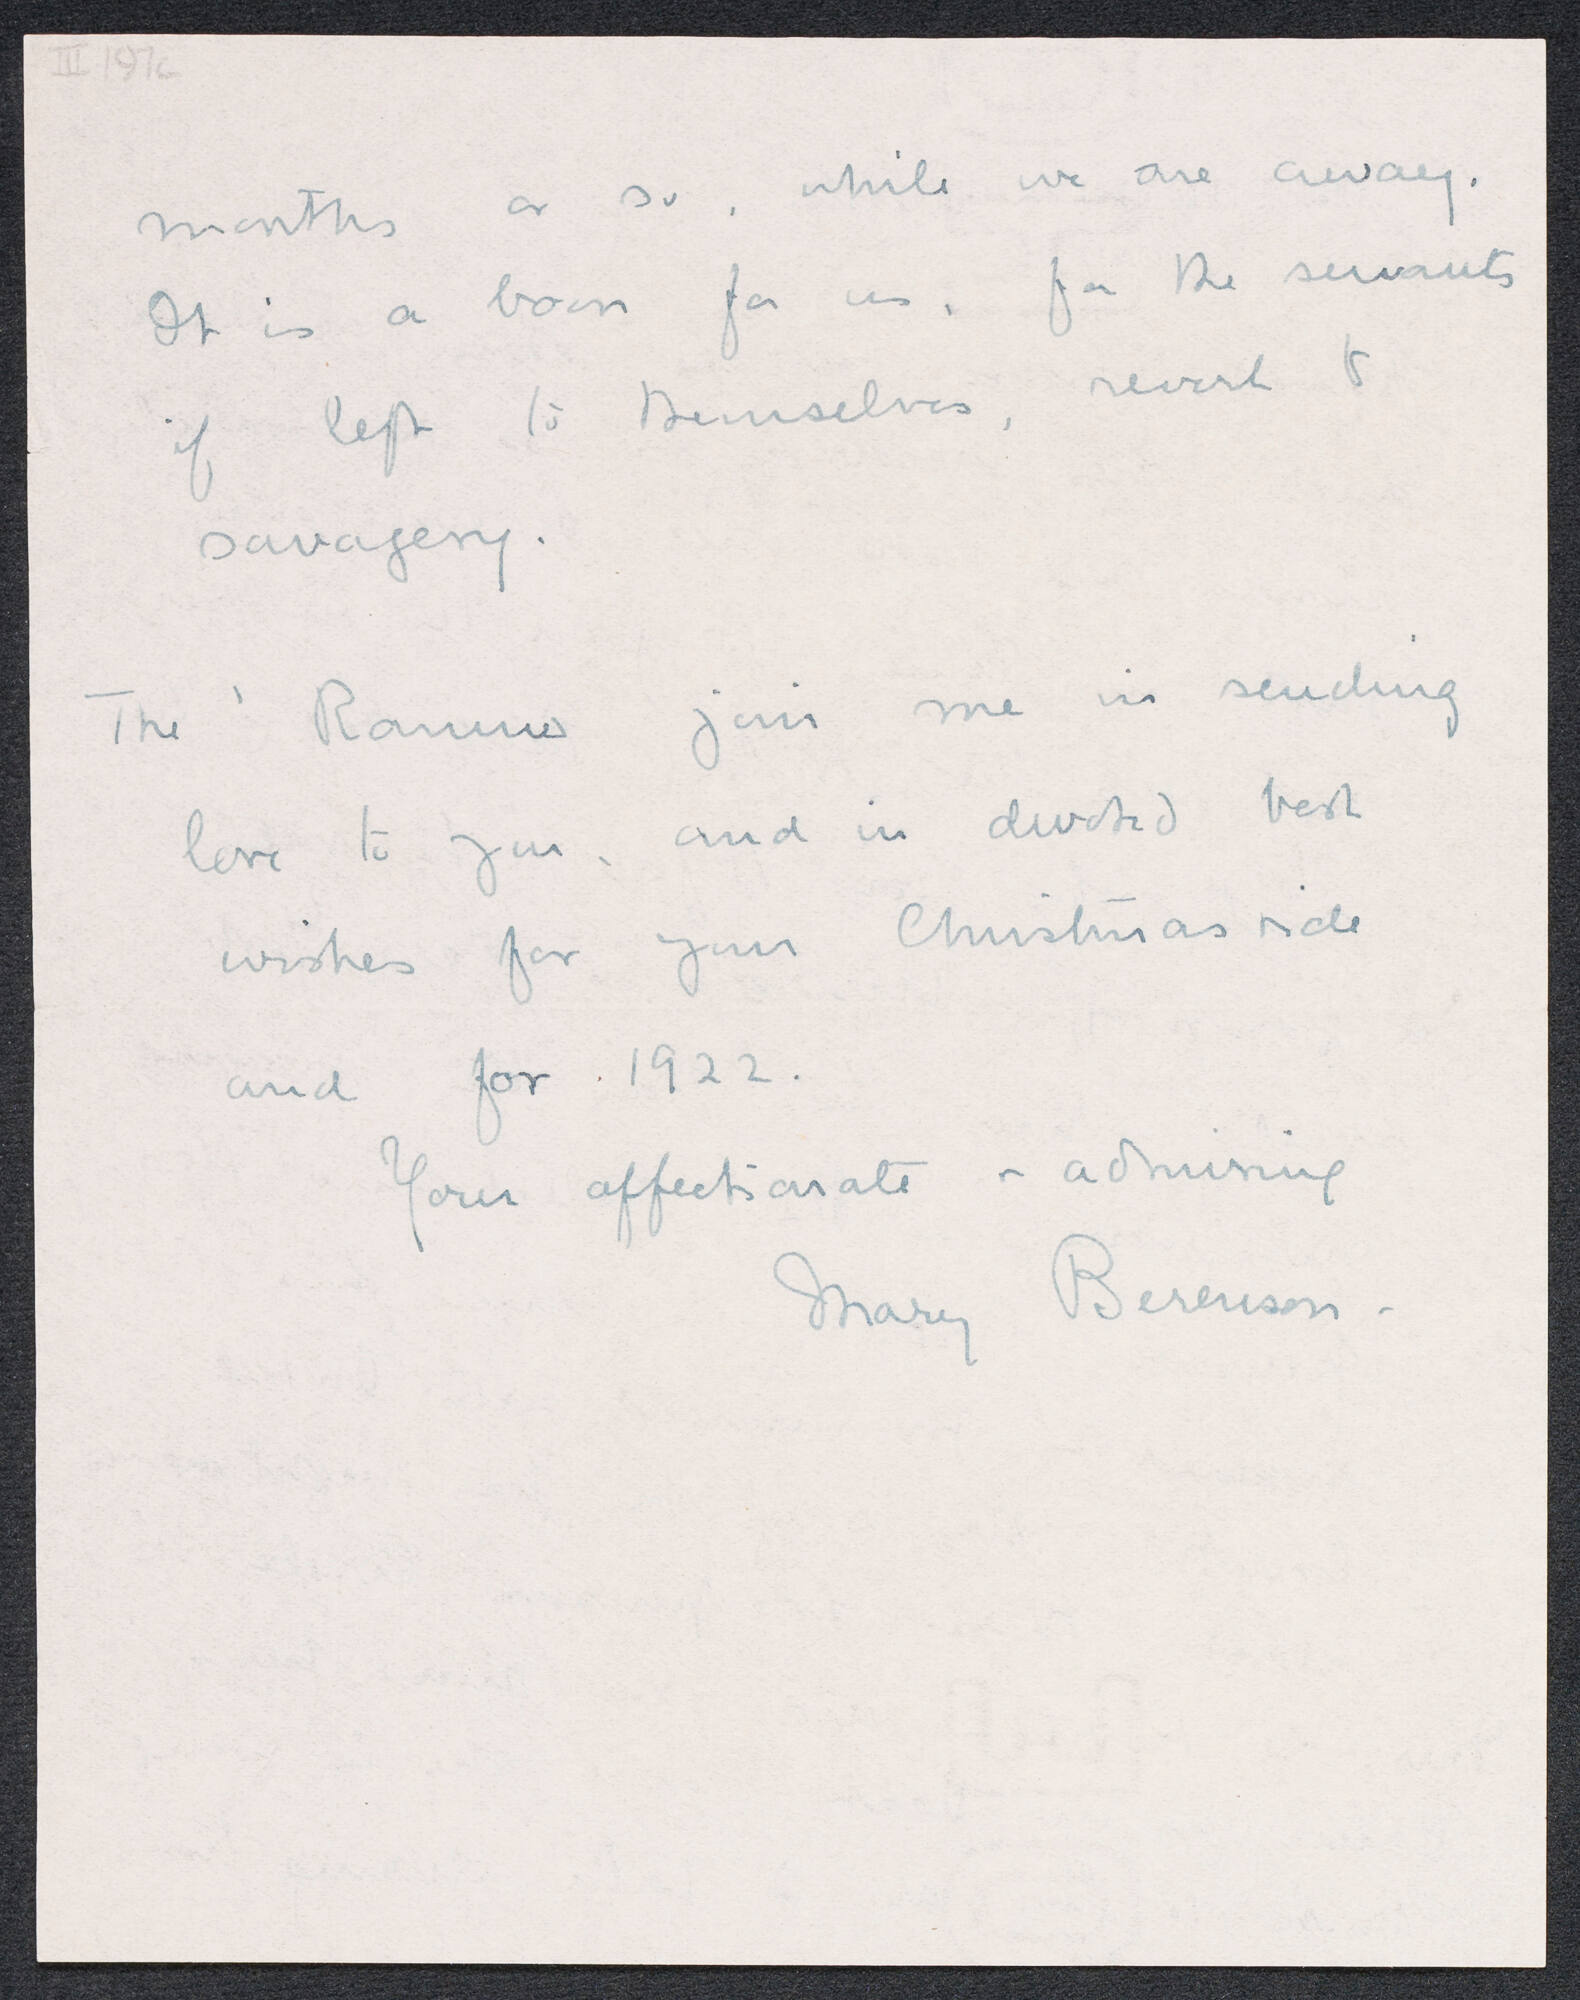 months or so, while we are away.
It is a boon for us, for the servants
if left to themselves, revert to
savagery.
The join me in sending
love to you, and in devoted best
wishes for your Christmas tide
and for 1922.
Your affectionate & admiring
Mary Berenson -